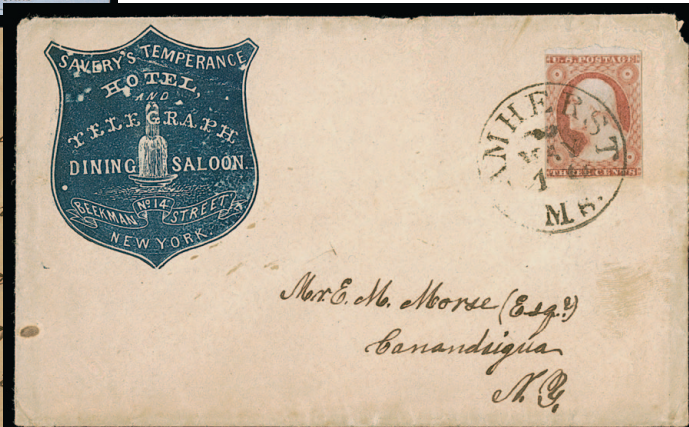 SAVERY'S TEMPERANCE
HOTEL,
AND
TELEGRAPH
DINING SALOON.
BEEKMAN No 14 STREET
NEW YORK.
U.S. POSTAGE
THREE CENTS
AMHERST
MAY
1
Ms.
Mr E. M. Morse (Esqr)
Canandaigua
N.Y.